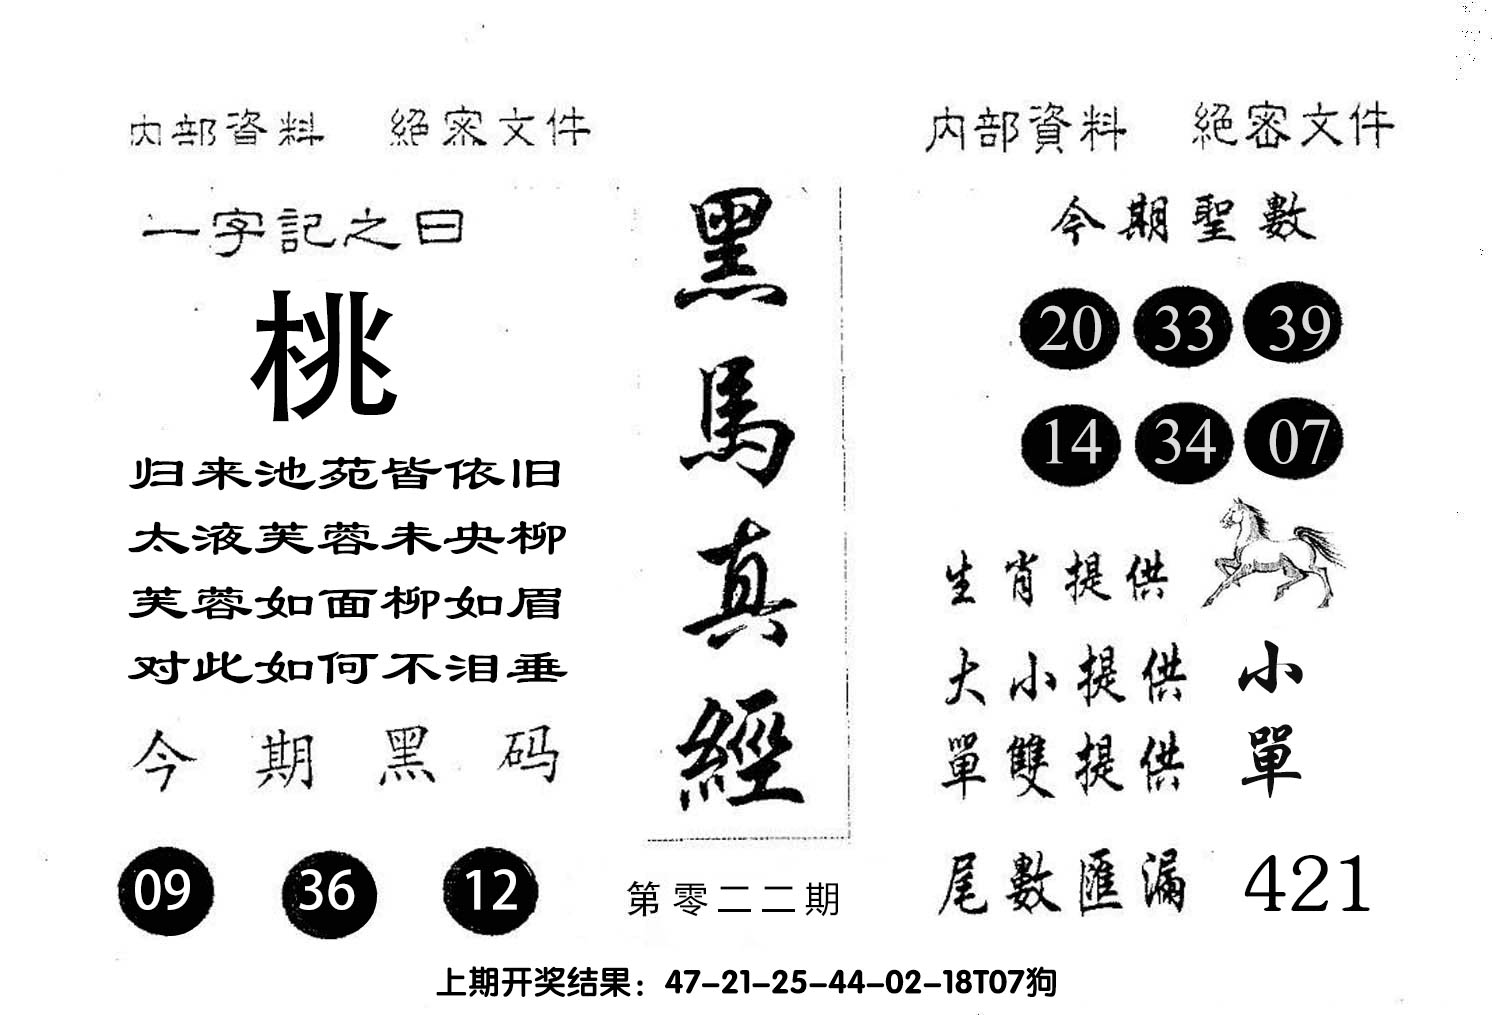 内部資料 絕密文件
一字記之曰
桃
归来池苑皆依旧
太液芙蓉未央柳
芙蓉如面柳如眉
对此如何不泪垂
今期黑码
09 36 12
黑馬真經
第零二二期
内部資料 絕密文件
今期聖數
20 33 39
14 34 07
生肖提供
大小提供 小
單雙提供 單
尾數匯漏 421
上期开奖结果：47-21-25-44-02-18T07狗